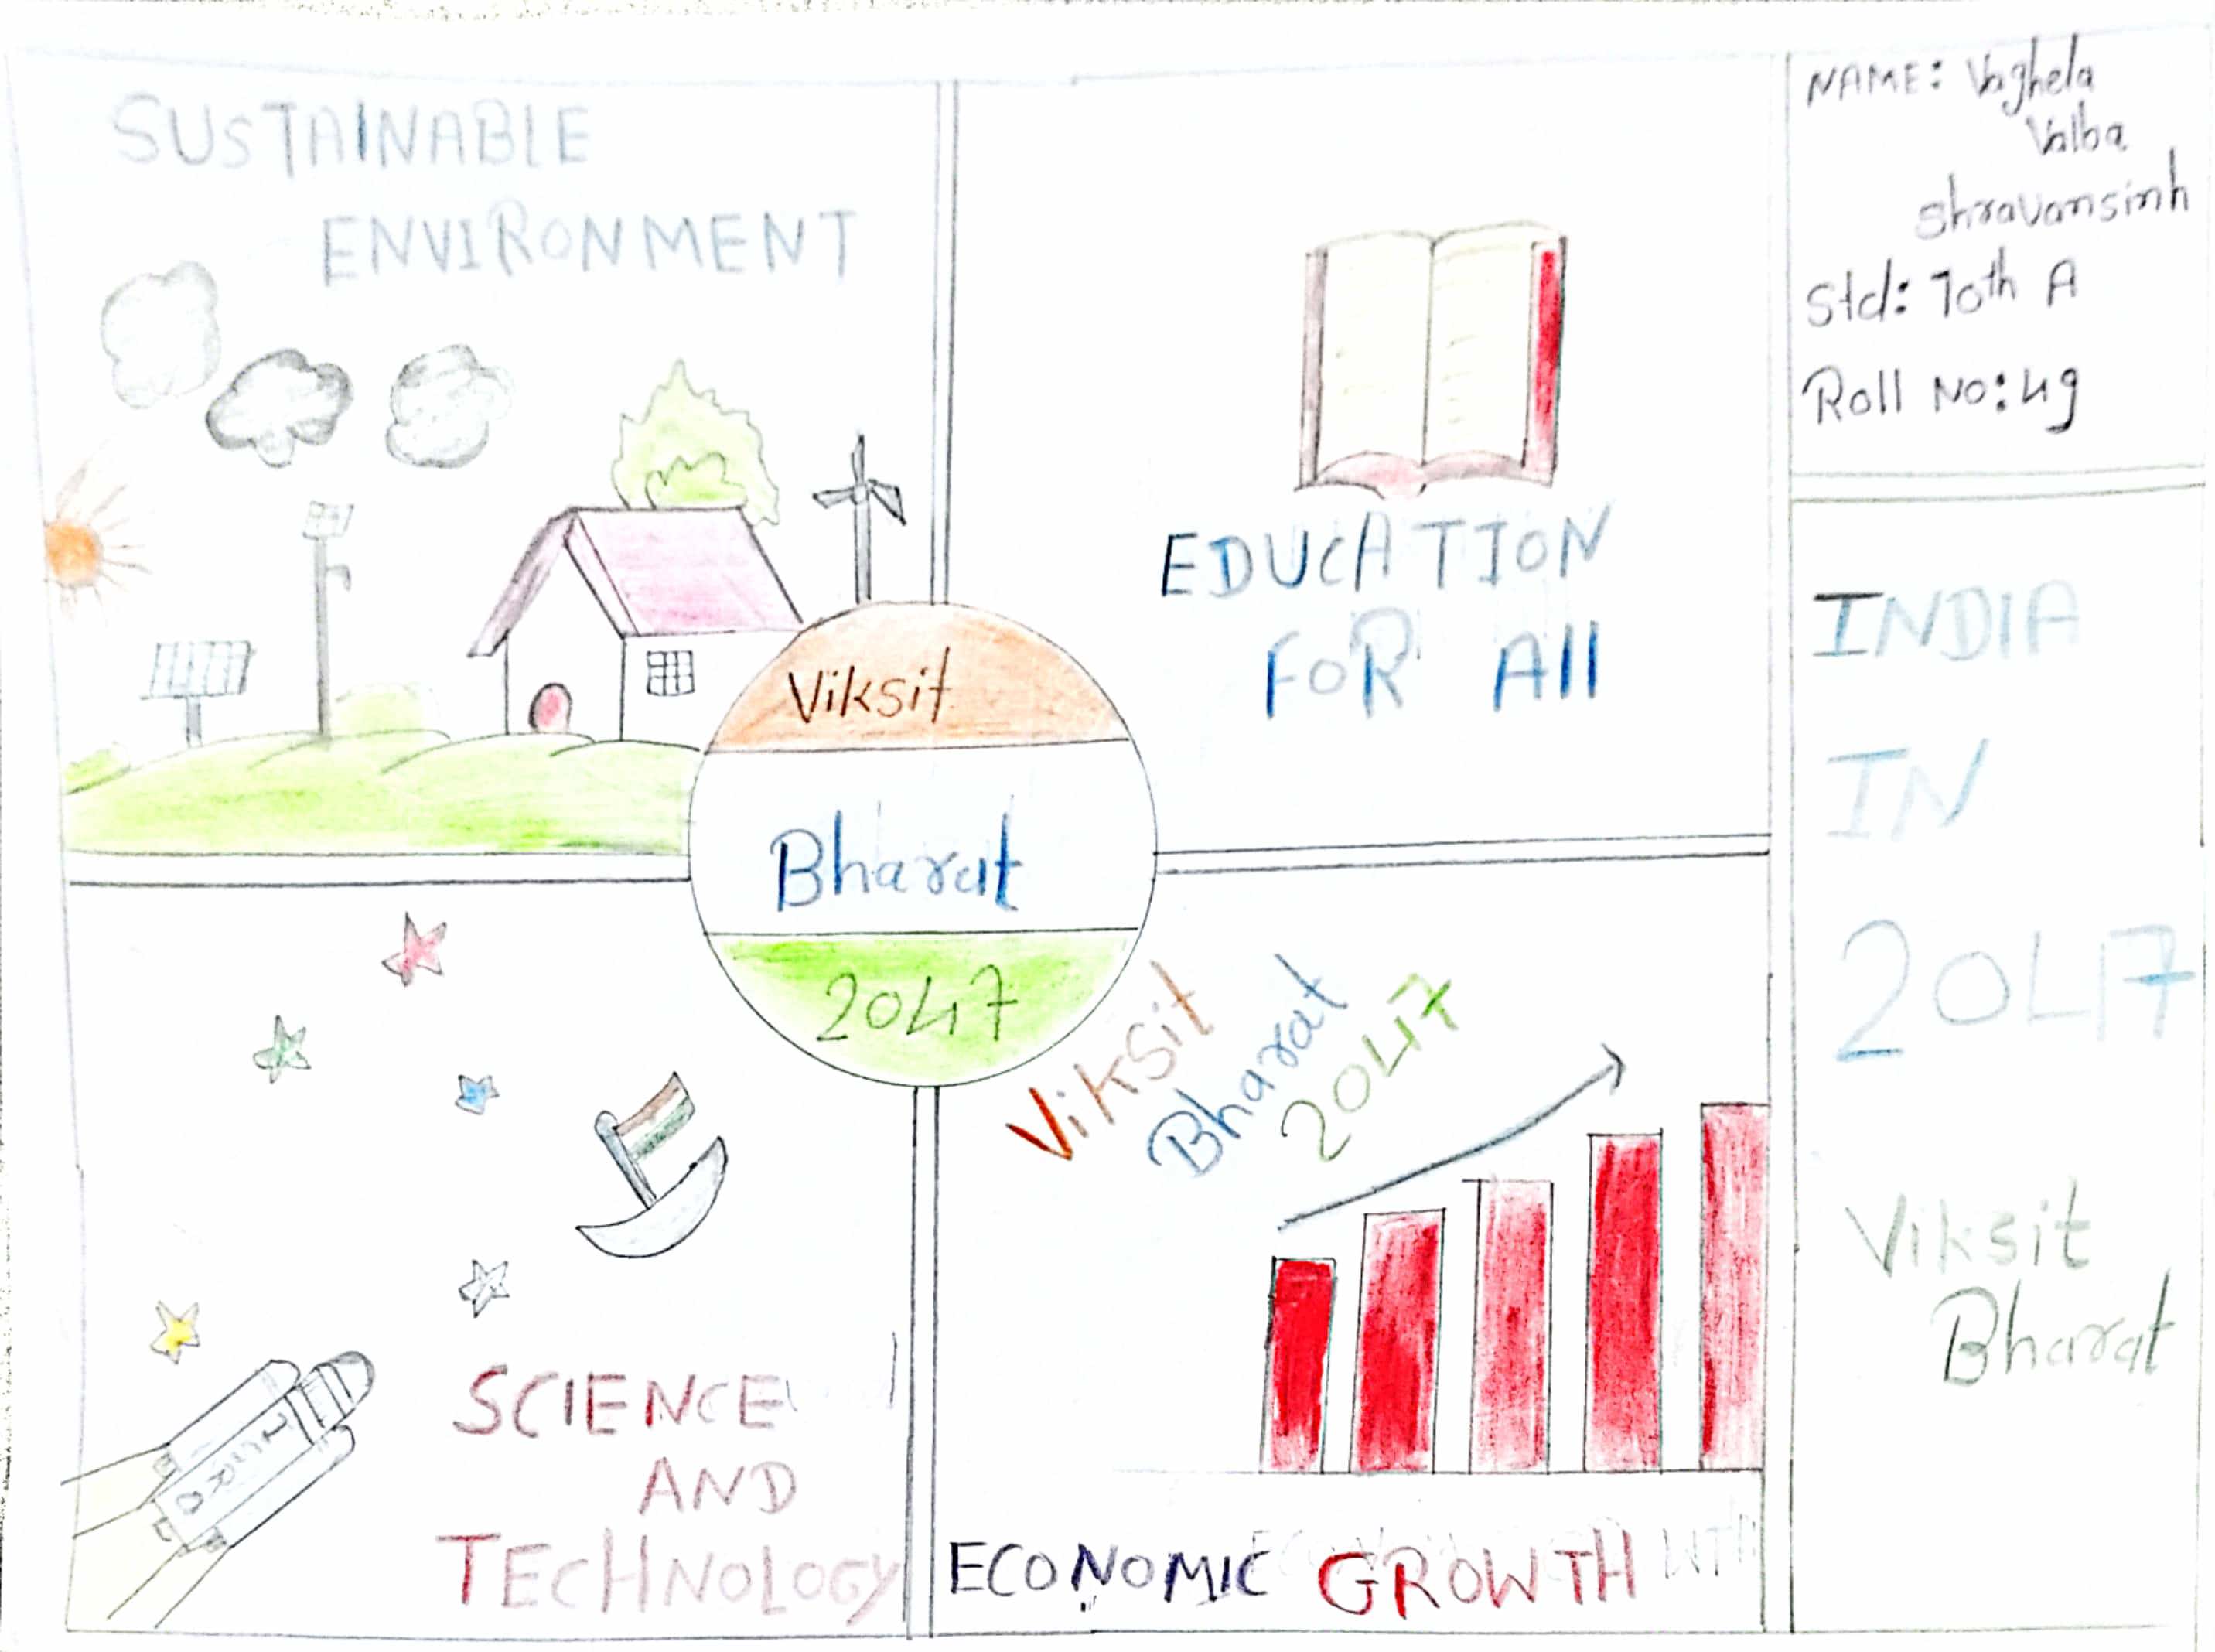 SUSTAINABLE
ENVIRONMENT
EDUCATION
FOR All
NAME: Vaghela
Valba
shravansinh
Std: 10th A
Roll No: 49
Viksit
Bharat
2047
INDIA
IN
2047
Viksit
Bharat
Viksit
Bharat
2047
SCIENCE
AND
TECHNOLOGY
ECONOMIC GROWTH